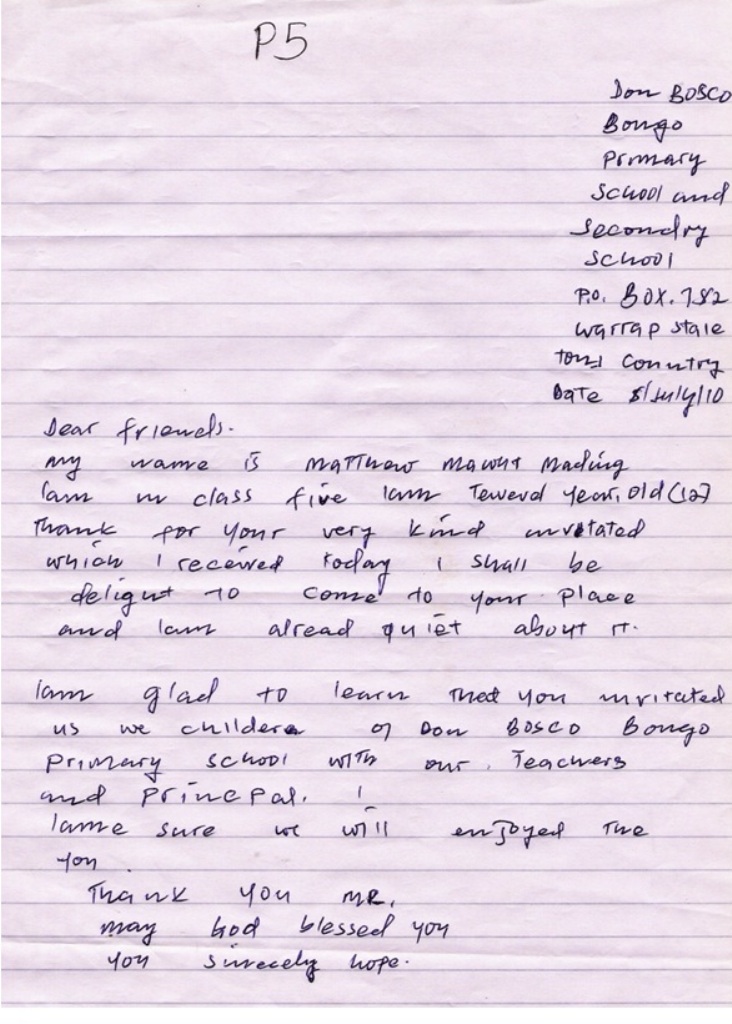 P5
Don BOSCO
Bongo
Primary
School and
Secondry
School
P.O. BOX. 782
Warrap state
Country
Date 8/July/10
Dear friends.
my name is Matthew Mawut Mading
Iam in class five Iam year, old (12)
Thank for your very kind invetated
which I received today i shall be
delight to come to your place
and Iam alread quiet about it.
Iam glad to learn that you invitated
us we childera of Don BOSCO Bongo
Primary School with our Teachers
and principal. I
Iame sure we will enjoyed the
you.
Thank you MR,
may God blessed you
you sincecly hope.